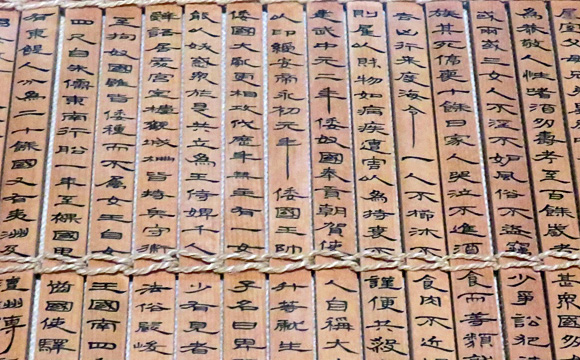 為恭敬人性嗜酒多壽考至百餘歲者甚衆國多
或兩或三女人不淫不妒風俗不盜竊少爭訟犯
族其死停喪十餘日家人哭泣不進酒食而等類
吉凶行來度海令一人不櫛沐不食肉不近
則雇以財物如病疾遭害以為持衰不謹便共殺
建武中元二年倭奴國奉貢朝賀使人自稱大
以印綬安帝永初元年倭國王帥升等獻生
倭國大亂更相攻伐歷年無主有一女子名曰卑
能以妖惑衆於是共立為王侍婢千人少有見者
辭語居處宮室樓觀城柵皆持兵守衛法俗嚴峻
至拘奴國雖皆倭種而不屬女王自女王國南四
四尺自朱儒東南行船一年至裸國黑齒國使驛
有東鯷人分為二十餘國又有夷洲及澶洲傳